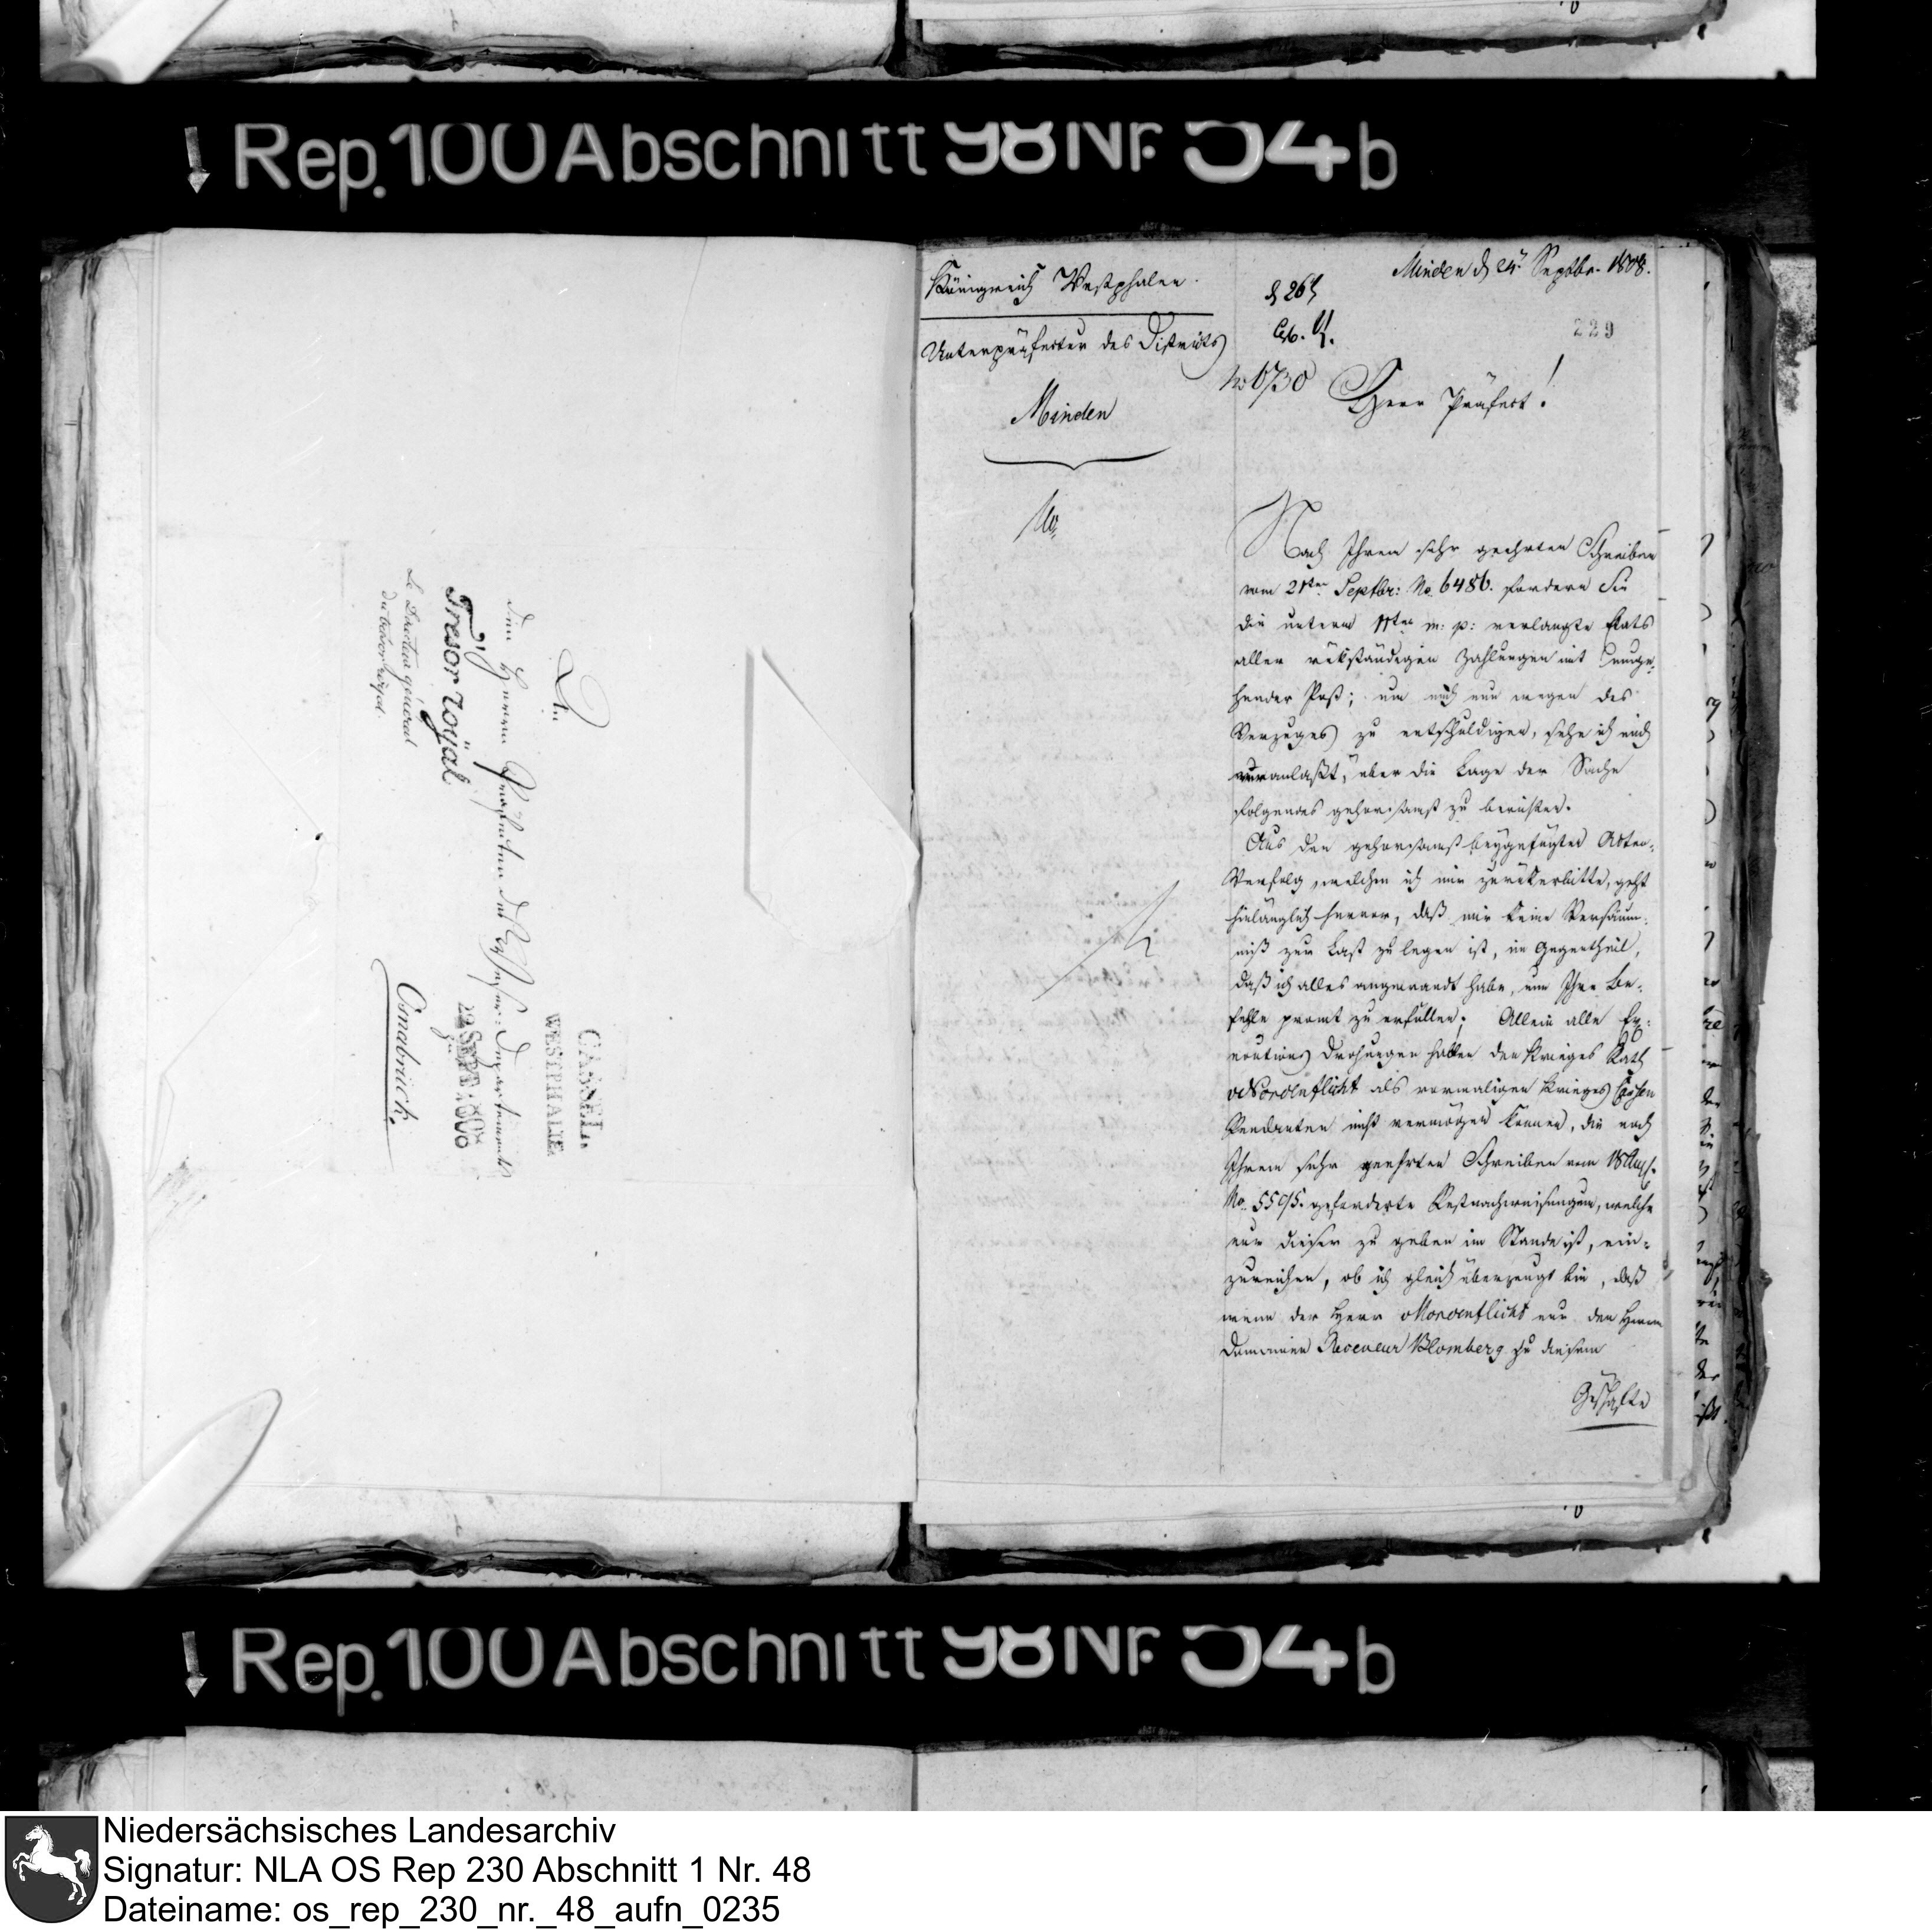 Rep. 100 Abschnitt 98 Nr. 54 b
An
den Herrn Präfekten des Weser-Departements
Tresor Royal
Le Directeur général
du trésor royal.
zu
Osnabrück.
CASSEL
WESTPHALIE
22 SEPT 1808
Königreich Westphalen.
Unterpräfectur des Districts
Minden
No.
Minden d 24. Septbr. 1808.
d 26t
229
No 6730
Herr Präfect!
Nach Ihrem sehr geehrten Schreiben
vom 21ten Septbr: No. 6486. fordern Sie
die unterm 11ten m: p: verlangte Etats
aller rükständigen Zahlungen mit umge-
hender Post; um mich nun wegen des
Verzuges zu entschuldigen, sehe ich mich
veranlaßt, über die Lage der Sache
folgendes gehorsamst zu berichten.
Aus den gehorsamst beygefügten Akten-
Verfolg, welchen ich mir zurükerbitte, geht
hinlänglich hervor, daß mir keine Versäum-
niß zur Last zu legen ist, im Gegentheil,
daß ich alles angewandt habe, um Ihre Be-
fehle promt zu erfüllen; Allein alle Ex-
ecutions Drohungen haben den Krieges Rath
v Nordenflicht als vormaligen Krieges Cassen
Rendanten nicht vermögen können, die nach
Ihrem sehr geehrten Schreiben vom 18 Aug.
No. 5595. geforderte Restnachweisungen, welche
nur dieser zu geben im Stande ist, ein-
zureichen, ob ich gleich überzeugt bin, daß
wenn der Herr v Nordenflicht nur den Herrn
Domainen Receveur Blomberg zu diesem
Geschäfte
Rep. 100 Abschnitt 98 Nr. 54 b
Niedersächsisches Landesarchiv
Signatur: NLA OS Rep 230 Abschnitt 1 Nr. 48
Dateiname: os_rep_230_nr._48_aufn_0235